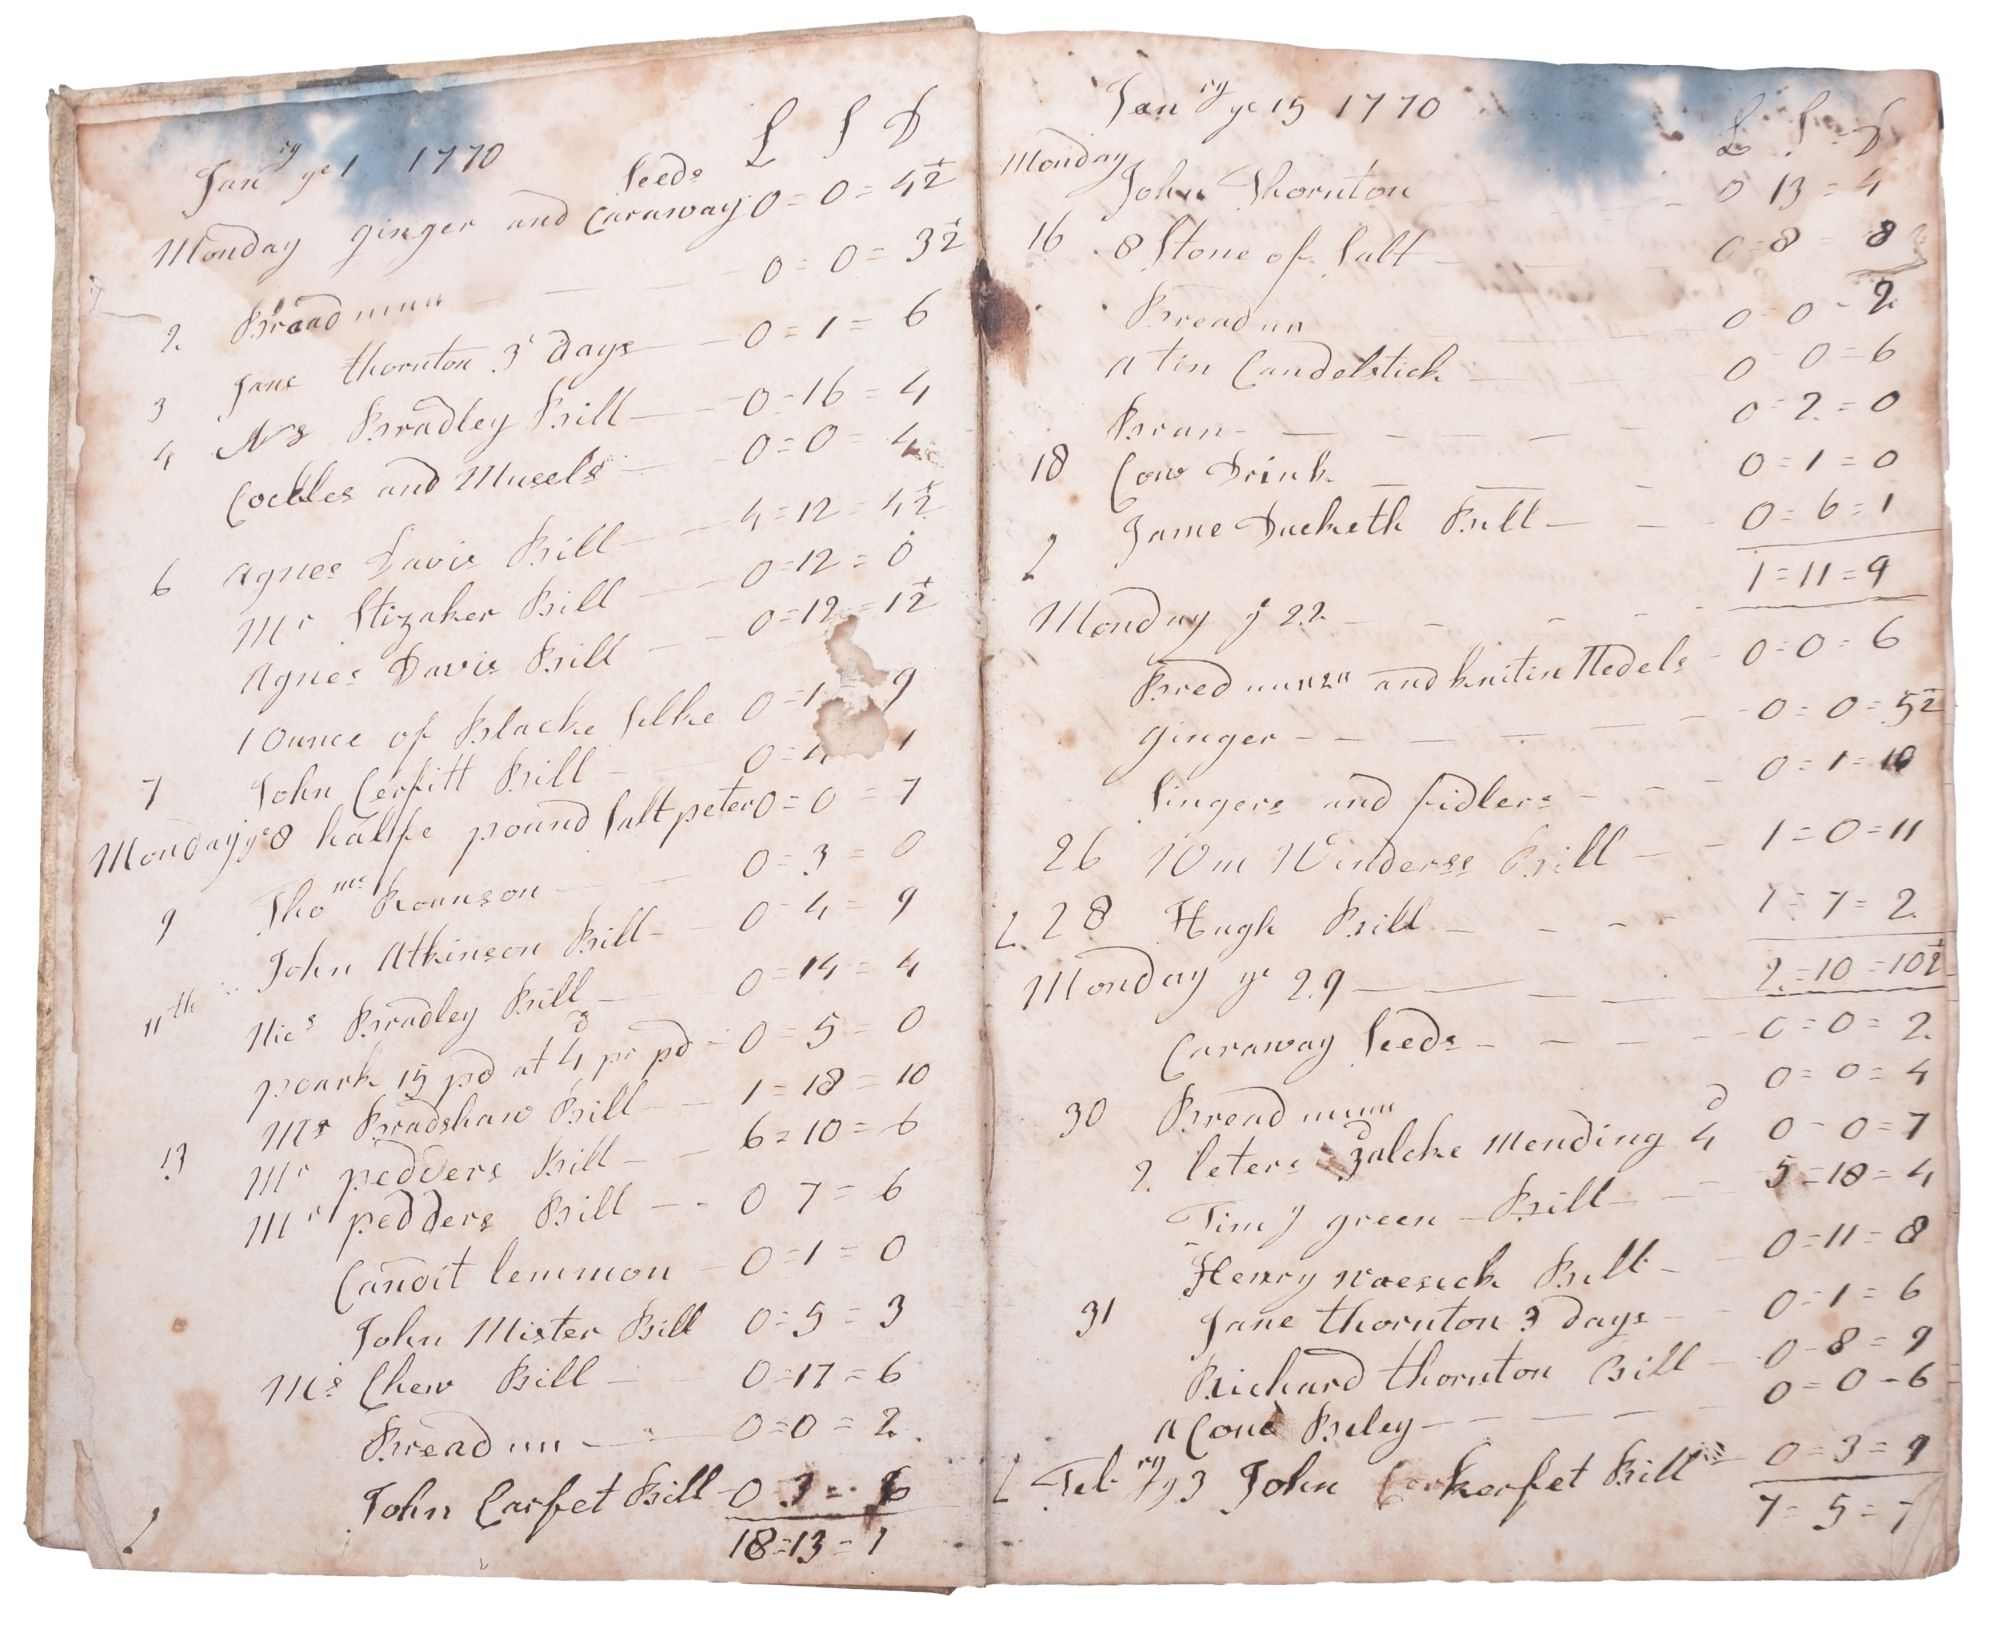 Janry ye 1 1770
L S D
Monday ginger and Caraway Seeds 0=0=4½
2 Braad 0=0=3½
3 Jane thornton 3 Days 0=1=6
4 Bradley Bill 0=16=4
Cockles and Musels 0=0=4
6 Agnes Davis Bill 4=12=4½
Mr Stizaker Bill 0=12=0
Agnes Davis Bill 0=12=1½
1 Ounce of Blacke silke 0=1=9
7 John Cerfitt Bill 0=4 1
Monday ye 8 halfe pound Salt peter 0=0=7
9 Thomas Rounson 0=3=0
John Atkinson Bill 0=4=9
11th Nics Bradley Bill 0=14=4
poark 15 pd at 4d pr pd 0=5=0
Mr Bradshaw Bill 1=18=10
13 Mr pedders Bill 6=10=6
Mr pedders Bill 0 7=6
Candit lemmon 0=1=0
John Mister Bill 0=5=3
Ms Chew Bill 0=17=6
Bread 0=0=2
John Carfet Bill 0 3=6
18=13=1
Janry ye 15 1770
L S D
Monday
John Thornton 0 13=4
16 8 Stone of Salt 0=8=8
Bread 0 0 2
A tin Candelstick 0 0=6
Bran 0=2=0
18 Cow Drink 0=1=0
Jame Ducketh Bill 0=6=1
1=11=9
Monday ye 22
Bred and knitin Nedels 0=0=6
ginger 0=0=5½
Singers and fidlers 0=1=10
26 Wm Winderss Bill 1=0=11
28 Hugh Bill 1=7=2
2=10=10½
Monday ye 29
Caraway Seeds 0=0=2
30 Bread 0=0=4
2 leters 3d Mending 4d 0=0=7
Timy green Bill 5=18=4
Henry Bill 0=11=8
31 Jane thornton 3 Days 0=1=6
Richard thornton Bill 0=8=9
A Beley 0=0=6
Febry ye 3 John Corkerfet Bill 0=3=9
7=5=7